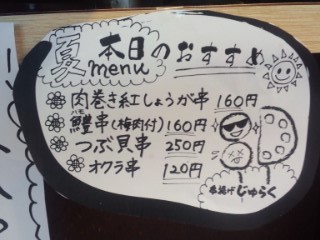 夏 本日のおすすめ
menu
肉巻き紅しょうが串 160円
ハモ
鱧串(梅肉付) 160円
つぶ貝串 250円
オクラ串 120円
串揚げ じゅらく